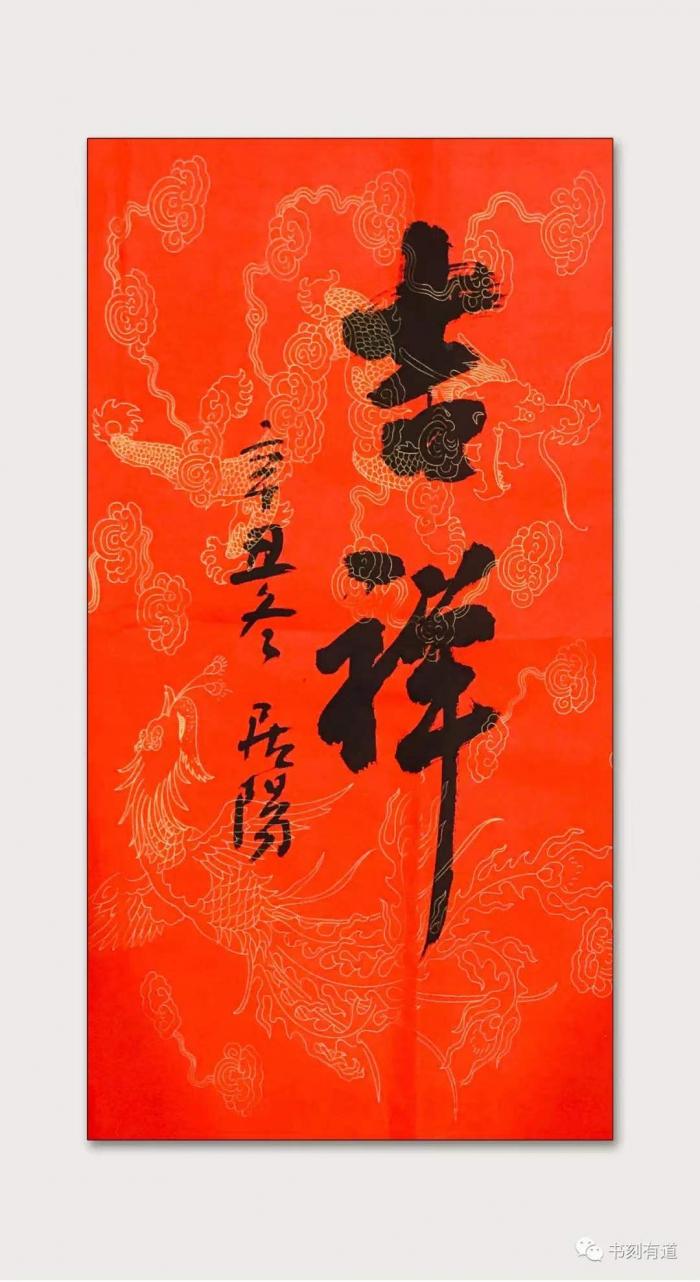 吉祥
辛丑冬 居阳
书刻有道